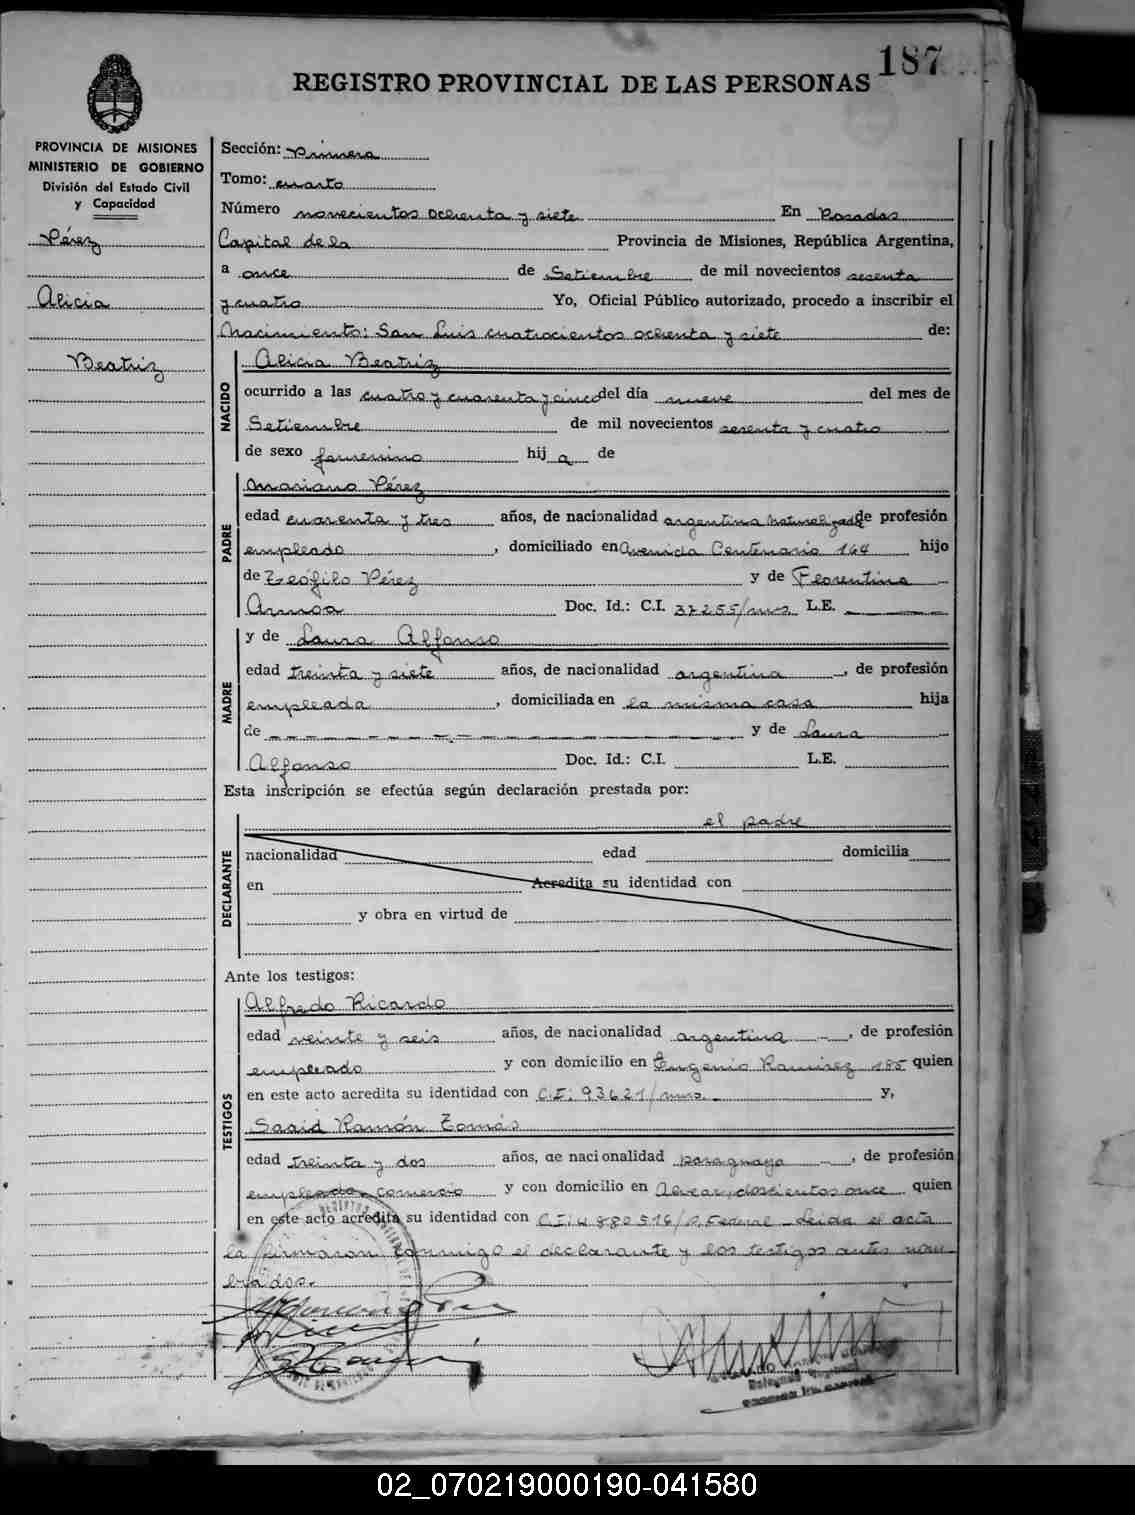 187
REGISTRO PROVINCIAL DE LAS PERSONAS
PROVINCIA DE MISIONES
MINISTERIO DE GOBIERNO
División del Estado Civil
y Capacidad
Pérez
Alicia
Beatriz
Sección: Primera
Tomo: cuarto
Número novecientos ochenta y siete En Posadas
Capital de la Provincia de Misiones, República Argentina,
a once de Setiembre de mil novecientos sesenta
y cuatro Yo, Oficial Público autorizado, procedo a inscribir el
Nacimiento: San Luis cuatrocientos ochenta y siete de:
NACIDO
Alicia Beatriz
ocurrido a las cuatro y cuarenta y cinco del día nueve del mes de
Setiembre de mil novecientos sesenta y cuatro
de sexo femenino hij a de
PADRE
Mariano Pérez
edad cuarenta y tres años, de nacionalidad argentina naturalizado de profesión
empleado, domiciliado en Avenida Centenario 164 hijo
de Teófilo Pérez y de Florentina
Armoa Doc. Id.: C.I. 37255/mns L.E.
MADRE
y de Laura Alfonso
edad treinta y siete años, de nacionalidad argentina, de profesión
empleada, domiciliada en la misma casa hija
de y de Laura
Alfonso Doc. Id.: C.I. L.E.
Esta inscripción se efectúa según declaración prestada por:
DECLARANTE
el padre
nacionalidad edad domicilia
en Acredita su identidad con
y obra en virtud de
Ante los testigos:
TESTIGOS
Alfredo Ricardo
edad veinte y seis años, de nacionalidad argentina, de profesión
empleado y con domicilio en Eugenio Ramirez 185 quien
en este acto acredita su identidad con C.I: 93621/mns. y,
Saaid Ramón Tomás
edad treinta y dos años, de nacionalidad paraguaya, de profesión
empleado comercio y con domicilio en Alvear doscientos once quien
en este acto acredita su identidad con C.I: 4880516/P. Federal Leida el acta
la firmaron conmigo el declarante y los testigos antes nom-
brados.
02_070219000190-041580